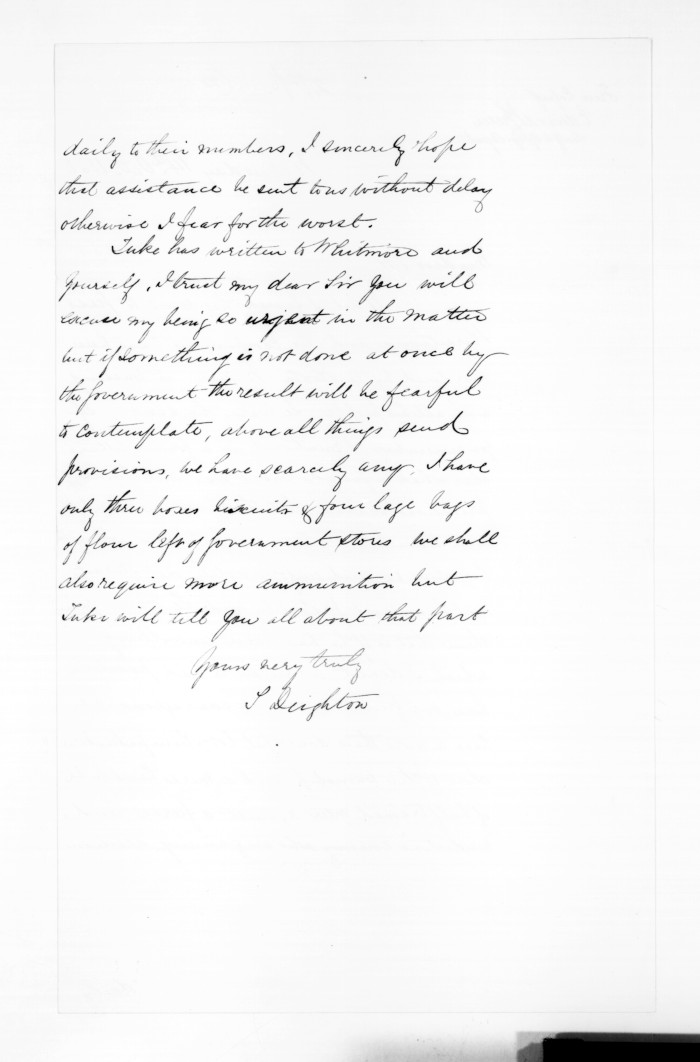 daily to their members, I sincerely hope
that assistance be sent to us without delay
otherwise I fear for the worst.
Tuke has written to Whitmore and
Yourself, I trust my dear Sir you will
excuse my being so urgent in the matter
but if something is not done at once by
the Government the result will be fearful
to contemplate, above all things send
provisions, we have scarcely any. I have
only three boxes biscuits & four lage bags
of flour left of Government stores we shall
also require more ammunition but
Tuke will tell you all about that part
Yours very truly
S Deighton